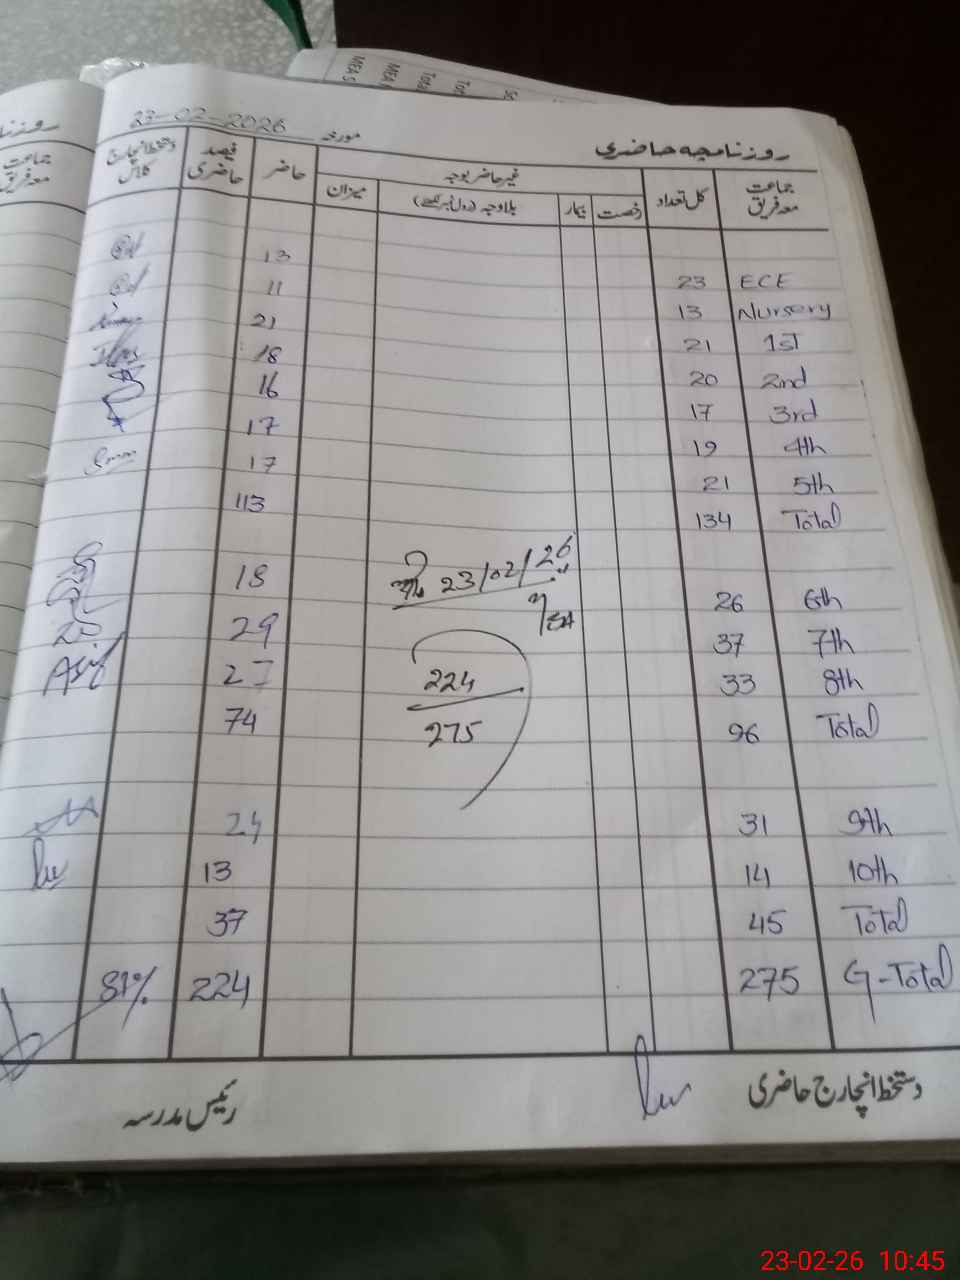 روزنامچہ حاضری مورخہ 23-02-2026
جماعت معہ فریق کل تعداد غیر حاضر بوجہ حاضر فیصد حاضری دستخط انچارج کلاس
رخصت بیمار بلاوجہ (رول نمبر لکھیے) میزان
ECE 23 13
Nursery 13 11
1st 21 21
2nd 20 18
3rd 17 16
4th 19 17
5th 21 17
Total 134 113
23/02/26
6th 26 18
7th 37 29
8th 33 27 Asif
Total 96 74
224
275
9th 31 24
10th 14 13
Total 45 37
G-Total 275 224 81%
دستخط انچارج حاضری
رئیس مدرسہ
روزنا
جماعت
معہ فریق
MEA
Tota
23-02-26 10:45